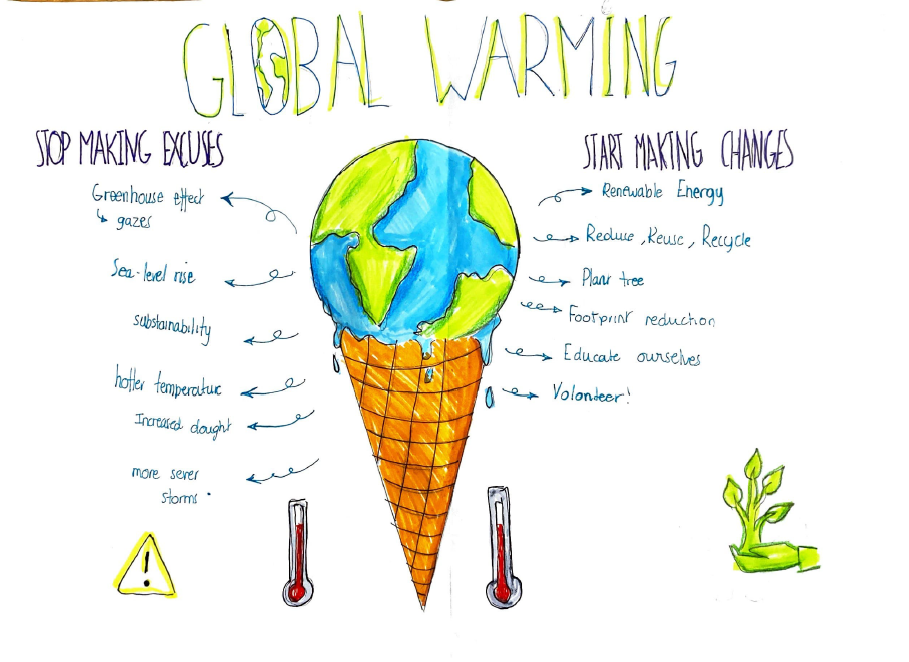 GLOBAL WARMING
STOP MAKING EXCUSES
Greenhouse effect
↳ gazes
Sea-level rise
substainability
hotter temperature
Increased dought
more sever
storms
START MAKING CHANGES
Renewable Energy
Reduse, Reuse, Recycle
Plant tree
Footprint reduction
Educate ourselves
Volonteer!
!